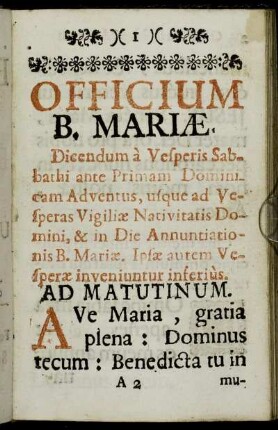 )( I )(
OFFICIUM
B. MARIÆ.
Dicendum à Vesperis Sab-
bathi ante Primam Domini-
cam Adventus, usque ad Ve-
speras Vigiliæ Nativitatis Do-
mini, & in Die Annuntiatio-
nis B. Mariæ. Ipsæ autem Ve-
speræ inveniuntur inferiùs.
AD MATUTINUM.
AVe Maria, gratia
plena: Dominus
tecum: Benedicta tu in
A 2 mu-